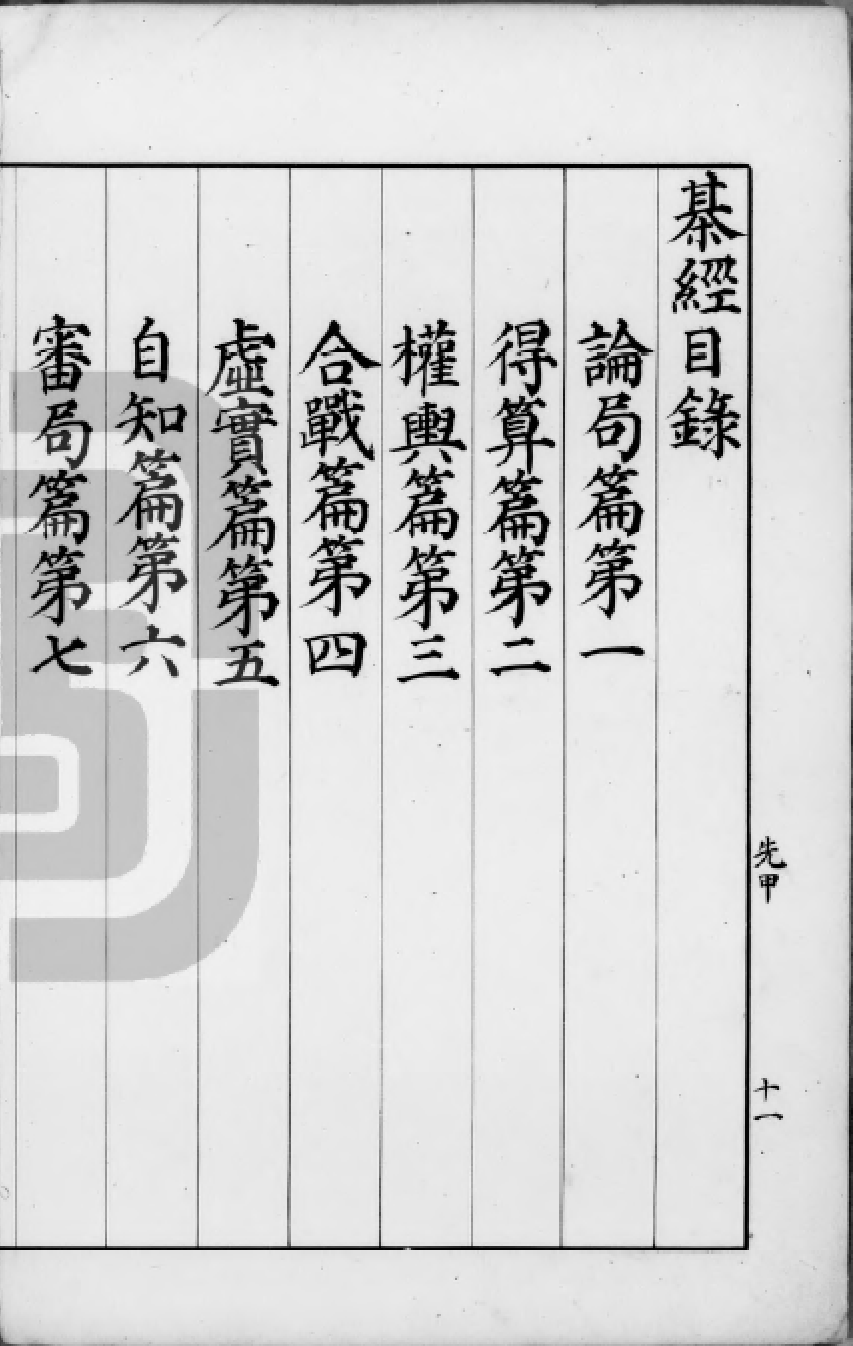 棊經目錄
論局篇第一
得算篇第二
權輿篇第三
合戰篇第四
虛實篇第五
自知篇第六
審局篇第七
先甲
十一